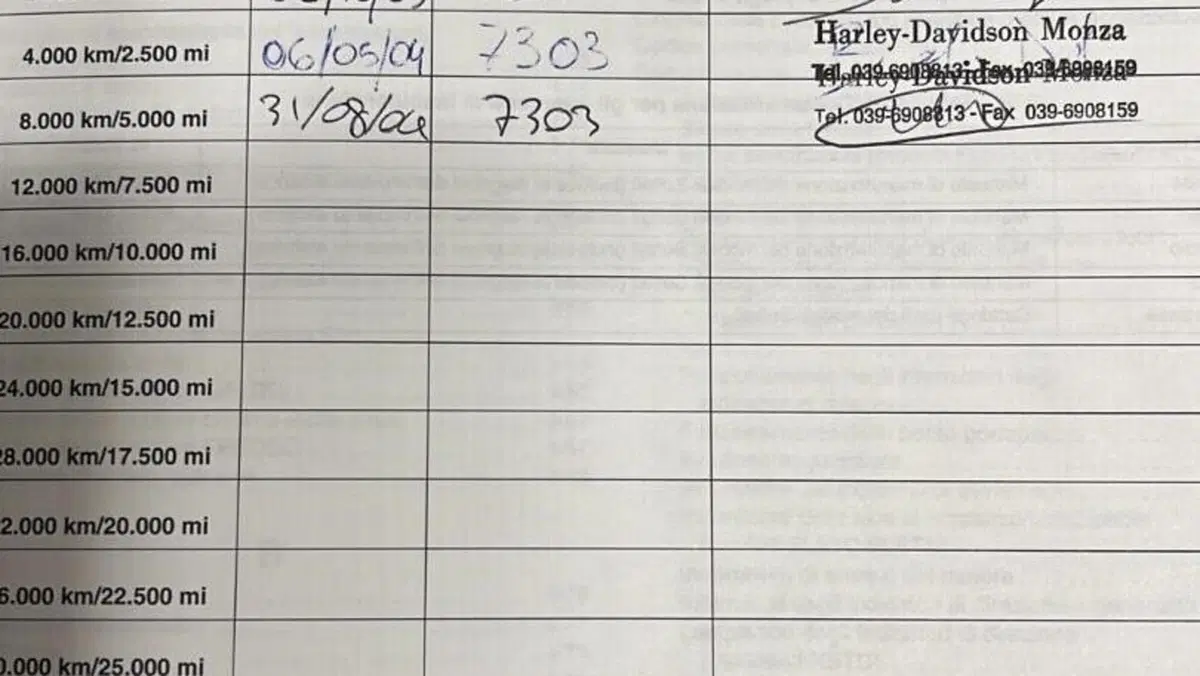 Harley-Davidson Monza
4.000 km/2.500 mi 06/05/04 7303
Tel. 039-6908813 - Fax 039-6908159
Harley-Davidson Monza
8.000 km/5.000 mi 31/08/04 7303
Tel. 039-6908813 - Fax 039-6908159
12.000 km/7.500 mi
16.000 km/10.000 mi
20.000 km/12.500 mi
24.000 km/15.000 mi
8.000 km/17.500 mi
2.000 km/20.000 mi
6.000 km/22.500 mi
0.000 km/25.000 mi